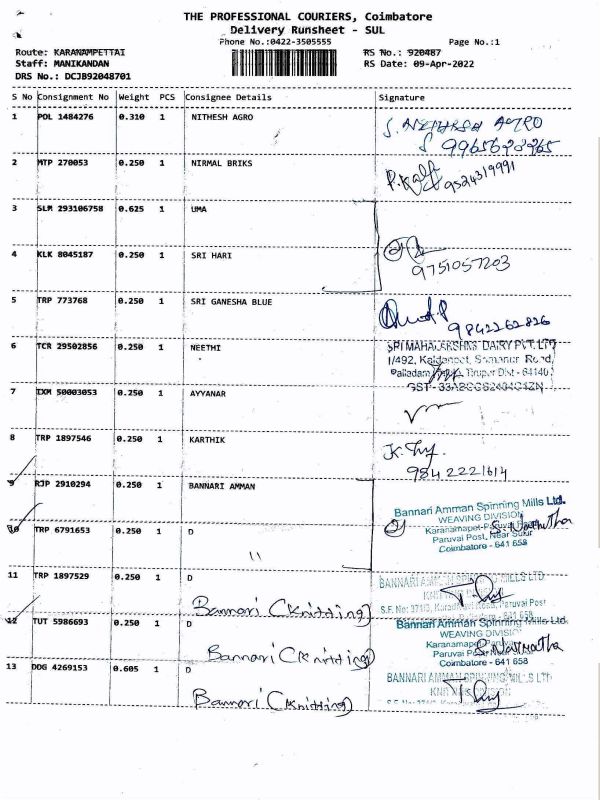 THE PROFESSIONAL COURIERS, Coimbatore
Delivery Runsheet - SUL
Phone No.:0422-3505555 Page No.:1
Route: KARANAMPETTAI RS No.: 920487
Staff: MANIKANDAN RS Date: 09-Apr-2022
DRS No.: DCJB92048701
S No Consignment No Weight PCS Consignee Details Signature
1 POL 1484276 0.310 1 NITHESH AGRO
2 MTP 270053 0.250 1 NIRMAL BRIKS
9524319991
3 SLM 293106758 0.625 1 UMA
4 KLK 8045187 0.250 1 SRI HARI
9751057203
5 TRP 773768 0.250 1 SRI GANESHA BLUE
9842262826
6 TCR 29502856 0.250 1 NEETHI
SRI MAHALAKSHMI DAIRY PVT. LTD
1/492, Road,
Palladam Tirupur Dist - 64140
7 IXM 50003053 0.250 1 AYYANAR
8 TRP 1897546 0.250 1 KARTHIK
9842221614
9 RJP 2910294 0.250 1 BANNARI AMMAN
Bannari Amman Spinning Mills Ltd.
WEAVING DIVISION
10 TRP 6791653 0.250 1 D
Paruvai Post, Near Sulur
Coimbatore - 641 658
11 TRP 1897529 0.250 1 D
BANNARI AMMAN SPINNING MILLS LTD
Bannari (Knitting)
12 TUT 5986693 0.250 1 D
Bannari Amman Spinning Mills Ltd.
WEAVING DIVISION
Bannari (Knitting)
Coimbatore - 641 658
13 DDG 4269153 0.605 1 D
BANNARI AMMAN SPINNING MILLS LTD
Bannari (Knitting)